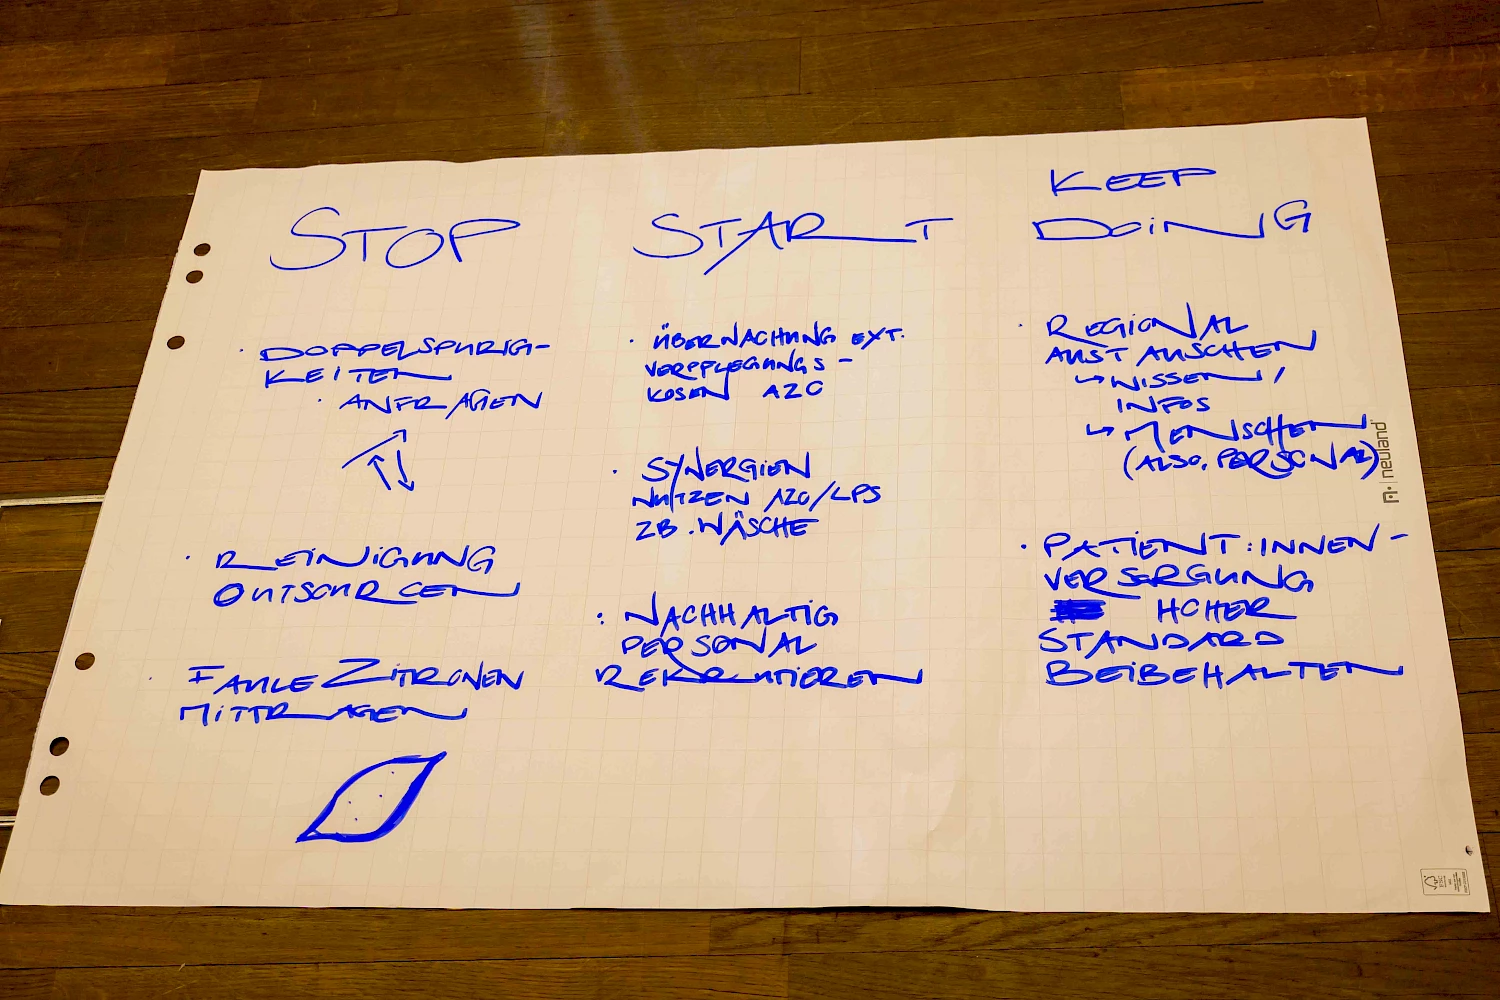 STOP
· DOPPELSPURIG-
KEITEN
· ANFRAGEN
· REINIGUNG
OUTSOURCEN
· FAULE ZITRONEN
MITTRAGEN
START
· ÜBERNACHUNG EXT.
VERPFLEGUNGS-
KOSEN AZO
· SYNERGIEN
NUTZEN AZO/LPS
ZB. WÄSCHE
: NACHHALTIG
PERSONAL
REKRUTIEREN
KEEP
DOING
· REGIONAL
AUSTAUSCHEN
↳ WISSEN/
INFOS
↳ MENSCHEN
(ALSO, PERSONAL)
· PATIENT:INNEN-
VERSORGUNG
HOHER
STANDARD
BEIBEHALTEN
neuland